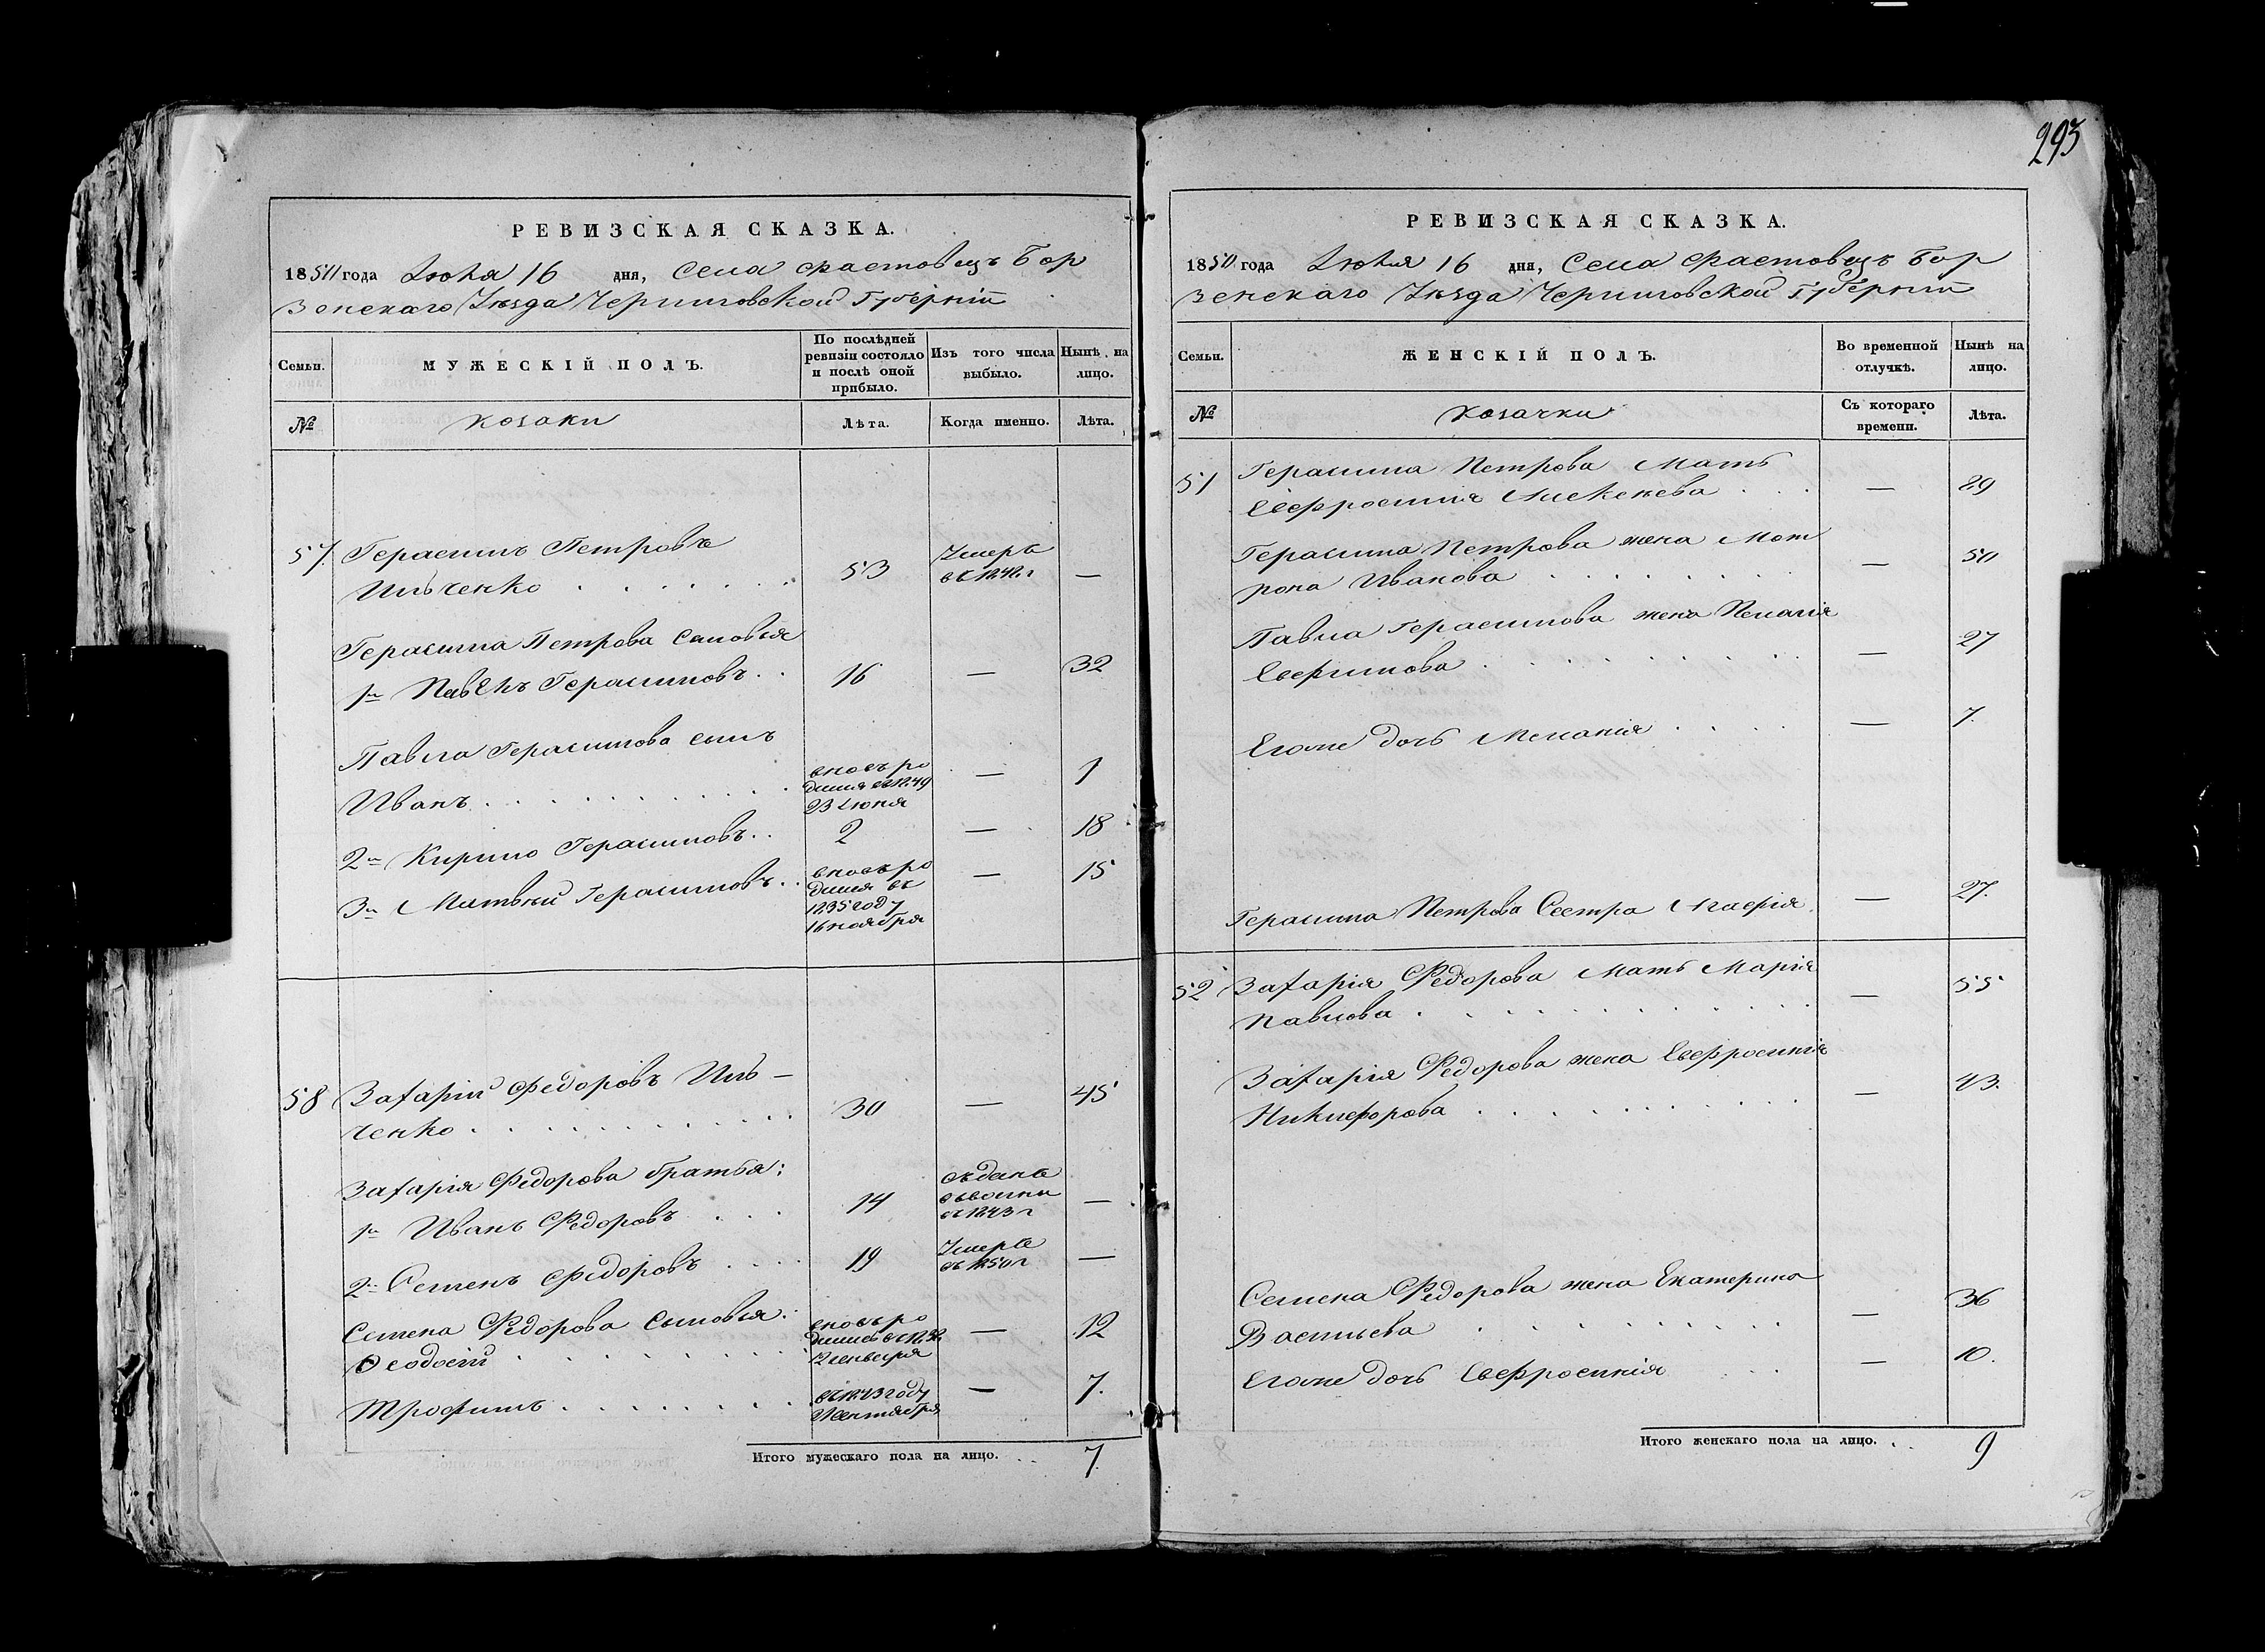 293
РЕВИЗСКАЯ СКАЗКА.
1850 года Іюня 16 дня, Села Фастовецъ Бор
зенскаго Уѣзда Черниговской Губерніи
Семьи.
МУЖЕСКІЙ ПОЛЪ.
По послѣдней
ревизіи состояло
и послѣ оной
прибыло.
Изъ того числа
выбыло.
Нынѣ на
лицо.
№
козаки
Лѣта.
Когда именно.
Лѣта.
57. Герасимъ Петровъ
Ильченко 53 Умеръ
въ 1842 г —
Герасима Петрова сыновья
1й Павелъ Герасимовъ 16 — 32
Павла Герасимова сынъ
Иванъ вновь ро
дился въ 1849
23 Іюня — 1
2й Кирило Герасимовъ 2 — 18
3й Матвѣй Герасимовъ вновь ро
дился въ
1835 году
16 ноября — 15
58 Захарій Федоровъ Иль-
ченко 30 — 45
Захарія Федорова братья:
1й Иванъ Федоровъ 14 —
въ 1843 г
2й Семенъ Федоровъ 19 Умеръ
въ 1850 г —
Семена Федорова Сыновья:
Ѳеодосій вновь ро
— 12
Трофимъ въ 1843 году
— 7.
Итого мужескаго пола на лицо. 7.
РЕВИЗСКАЯ СКАЗКА.
1850 года Іюня 16 дня, Села Фастовецъ Бор
зенскаго Уѣзда Черниговской Губерніи
Семьи.
ЖЕНСКІЙ ПОЛЪ.
Во временной
отлучкѣ.
Нынѣ на
лицо.
№
козачки
Съ котораго
времени.
Лѣта.
51 Герасима Петрова Мать
Евфросинія Алексѣева — 89
Герасима Петрова жена Мот
рона Иванова — 50
Павла Герасимова жена Пелагія
Евфимова — 27
Егоже дочь Меланія — 7.
Герасима Петрова Сестра Агафія — 27.
52 Захарія Федорова Мать Марія
Павлова — 55
Захарія Федорова жена Евфросинія
Никифорова — 43.
Семена Федорова жена Екатерина
Васильева — 36
Егоже дочь Евфросинія — 10.
Итого женскаго пола на лицо. 9